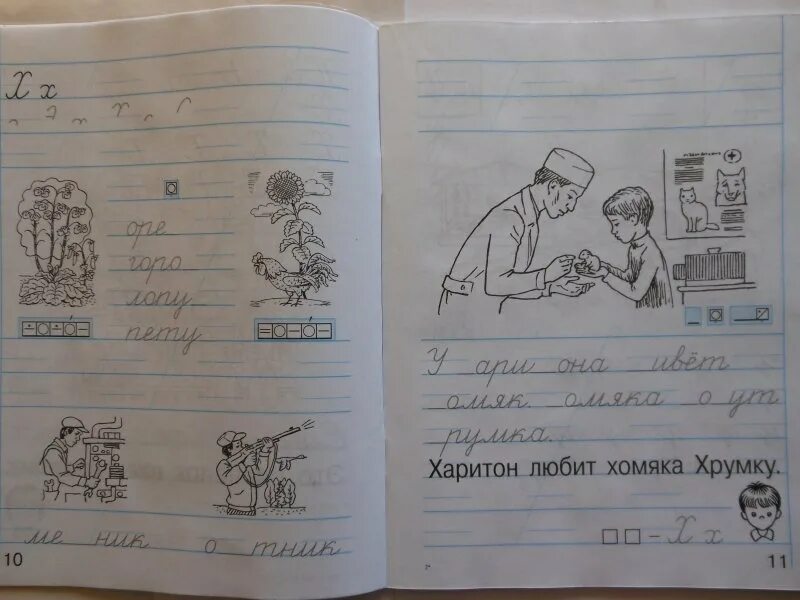 Х х
оре
горо
лопу
пету
ме ник о тник
10
У ари она ивёт
омяк. омяка о ут
румка.
Харитон любит хомяка Хрумку.
– Х х
11